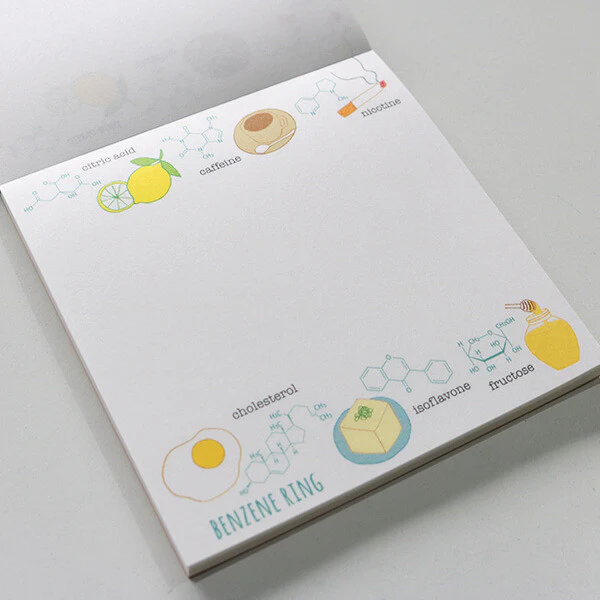 citric acid
caffeine
nicotine
cholesterol
isoflavone
fructose
BENZENE RING